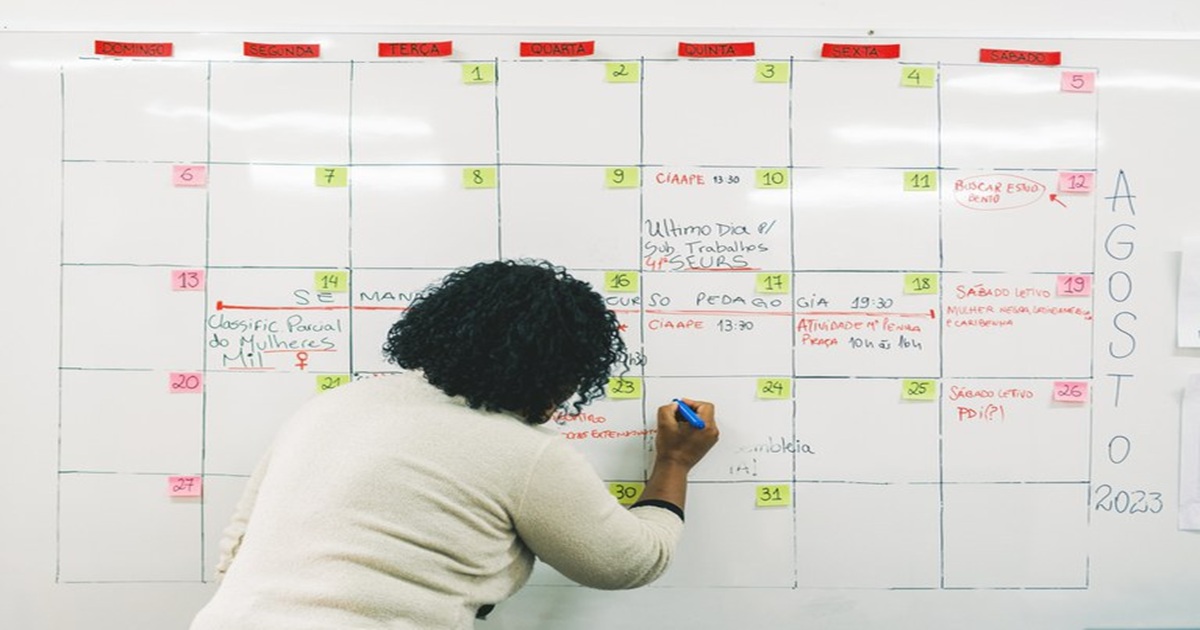 DOMINGO SEGUNDA TERÇA QUARTA QUINTA SEXTA SÁBADO
1 2 3 4 5
6 7 8 9 10 11 12
CIAAPE 13:30
BUSCAR ESTUD
Ultimo Dia p/
Sub Trabalhos
41º SEURS
13 14 16 17 18 19
SE MANA CUR SO PEDAGO GIA 19:30
Classific. Parcial
do Mulheres
Mil ♀
CIAAPE 13:30
ATIVIDADE Mª PENHA
PRAÇA 10h às 16h
SÁBADO LETIVO
MULHER NEGRA
E CARIBENHA
20 21 23 24 25 26
embleia
SÁBADO LETIVO
PDI(?)
27 30 31
AGOSTO
2023